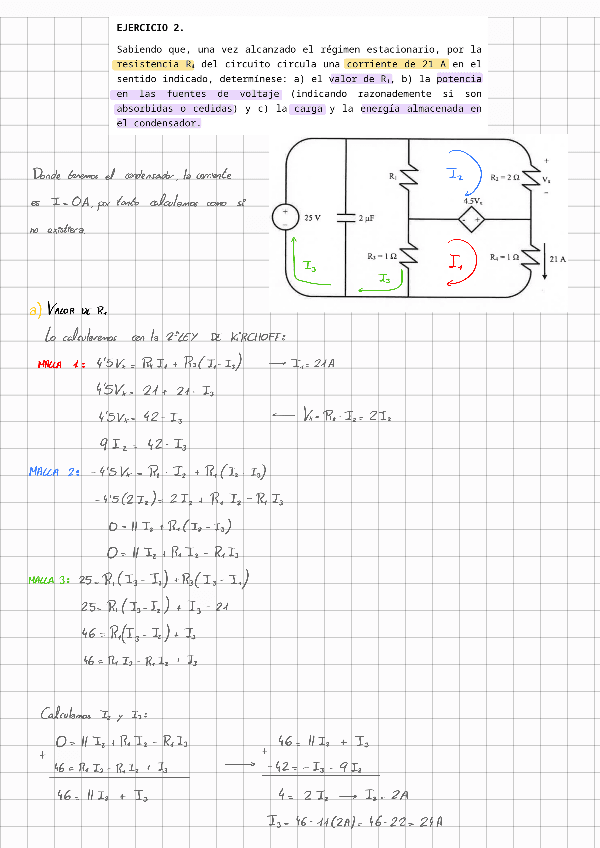 EJERCICIO 2.
Sabiendo que, una vez alcanzado el régimen estacionario, por la
resistencia R₄ del circuito circula una corriente de 21 A en el
sentido indicado, determínese: a) el valor de R₁, b) la potencia
en las fuentes de voltaje (indicando razonadamente si son
absorbidas o cedidas) y c) la carga y la energía almacenada en
el condensador.
Donde tenemos el condensador, la corriente
es I = 0A, por tanto calculamos como si
no existiera.
R₁
I₂
R₂ = 2 Ω
+
Vₓ
−
4.5Vₓ
+
−
25 V
2 μF
R₃ = 1 Ω
I₁
R₄ = 1 Ω
21 A
I₃
I₃
a) VALOR DE R₁
Lo calcularemos con la 2ª LEY DE KIRCHOFF:
MALLA 1: 4'5Vₓ = R₄I₁ + R₃(I₁ - I₃) → I₁ = 21A
4'5Vₓ = 21 + 21 - I₃
4'5Vₓ = 42 - I₃ ← Vₓ = R₂ · I₂ = 2I₂
9I₂ = 42 - I₃
MALLA 2: -4'5Vₓ = R₂ · I₂ + R₁(I₂ - I₃)
-4'5(2I₂) = 2I₂ + R₁I₂ - R₁I₃
0 = 11I₂ + R₁(I₂ - I₃)
0 = 11I₂ + R₁I₂ - R₁I₃
MALLA 3: 25 = R₁(I₃ - I₂) + R₃(I₃ - I₁)
25 = R₁(I₃ - I₂) + I₃ - 21
46 = R₁(I₃ - I₂) + I₃
46 = R₁I₃ - R₁I₂ + I₃
Calculamos I₂ y I₃:
0 = 11I₂ + R₁I₂ - R₁I₃
+
46 = R₁I₃ - R₁I₂ + I₃
46 = 11I₂ + I₃
→
46 = 11I₂ + I₃
+
-42 = -I₃ - 9I₂
4 = 2I₂ → I₂ = 2A
I₃ = 46 - 11(2A) = 46 - 22 = 24A